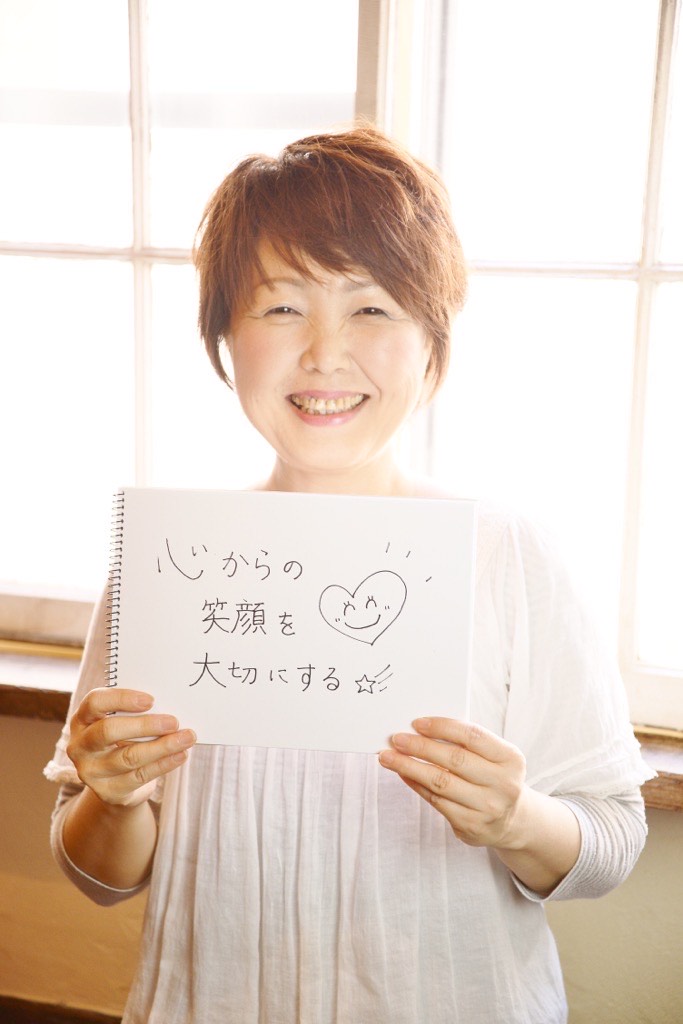 心からの
笑顔を
大切にする☆